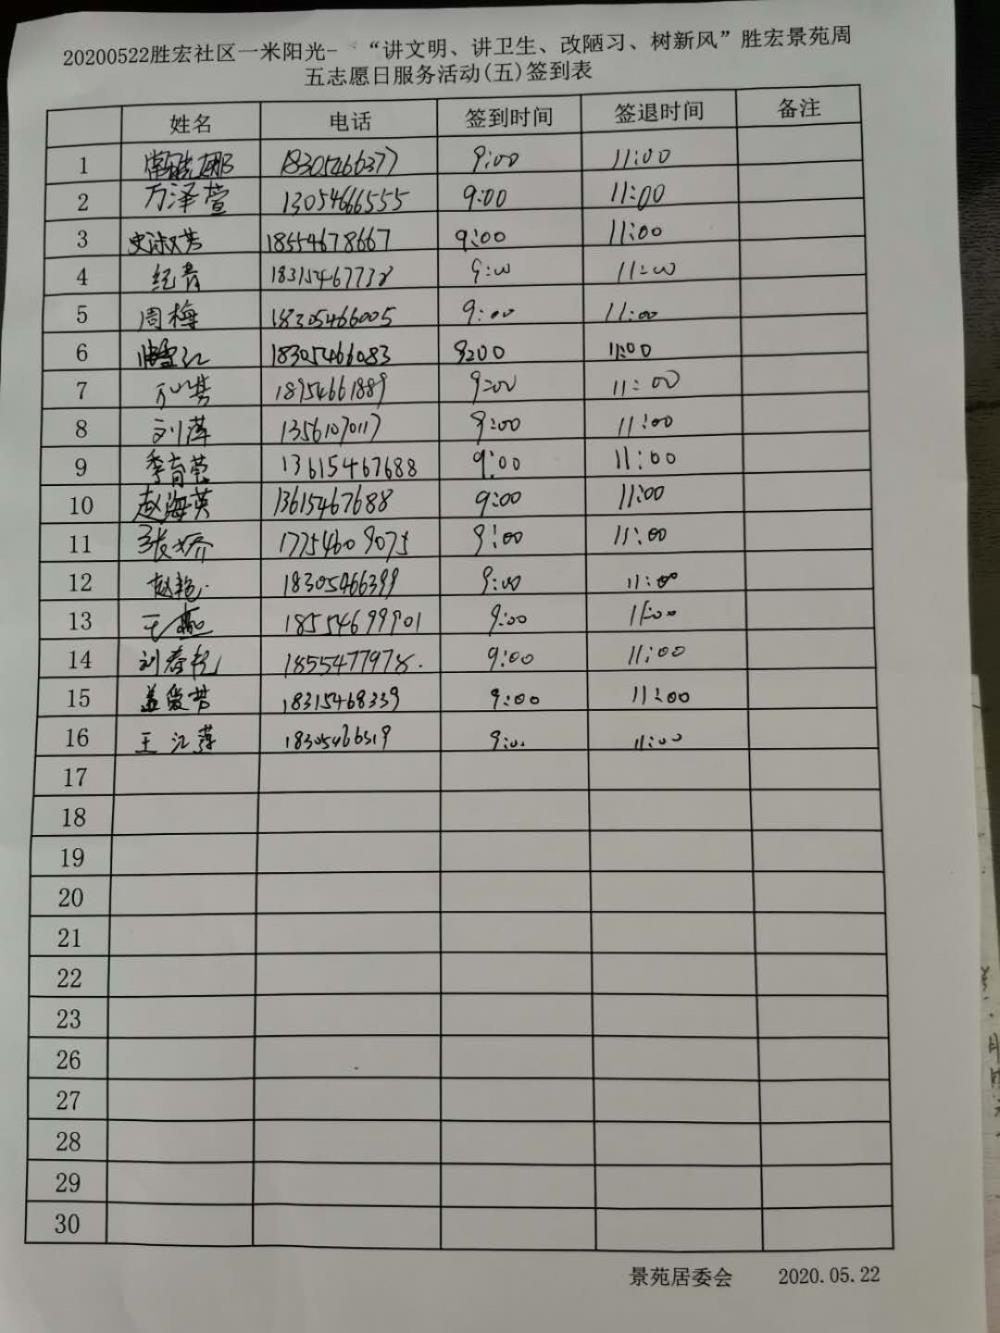 20200522胜宏社区一米阳光- “讲文明、讲卫生、改陋习、树新风”胜宏景苑周
五志愿日服务活动(五)签到表
姓名 电话 签到时间 签退时间 备注
1 18305466377 9:00 11:00
2 万泽萱 13054666555 9:00 11:00
3 史淑芳 18554678667 9:00 11:00
4 纪青 18315467738 9:00 11:00
5 周梅 18305466005 9:00 11:00
6 18305466083 9:00 11:00
7 18954661889 9:00 11:00
8 刘萍 13561070117 9:00 11:00
9 季育莹 13615467688 9:00 11:00
10 赵海英 13615467688 9:00 11:00
11 张娇 17754609075 9:00 11:00
12 赵艳 18305466399 9:00 11:00
13 王燕 18554699901 9:00 11:00
14 刘春艳 1855477978. 9:00 11:00
15 盖爱芳 18315468339 9:00 11:00
16 王江萍 18305466519 9:00 11:00
17
18
19
20
21
22
23
26
27
28
29
30
景苑居委会 2020.05.22